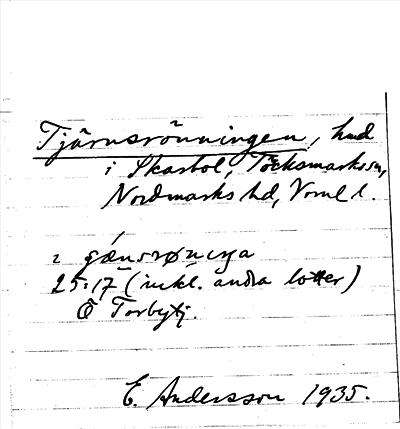 Tjärnsrönningen, hmd
i Skarbol, Töcksmarks sn,
Nordmarks hd, Vrml l.
25:17 (inkl. andra lotter)
Ö Torbytj.
E. Andersson 1935.